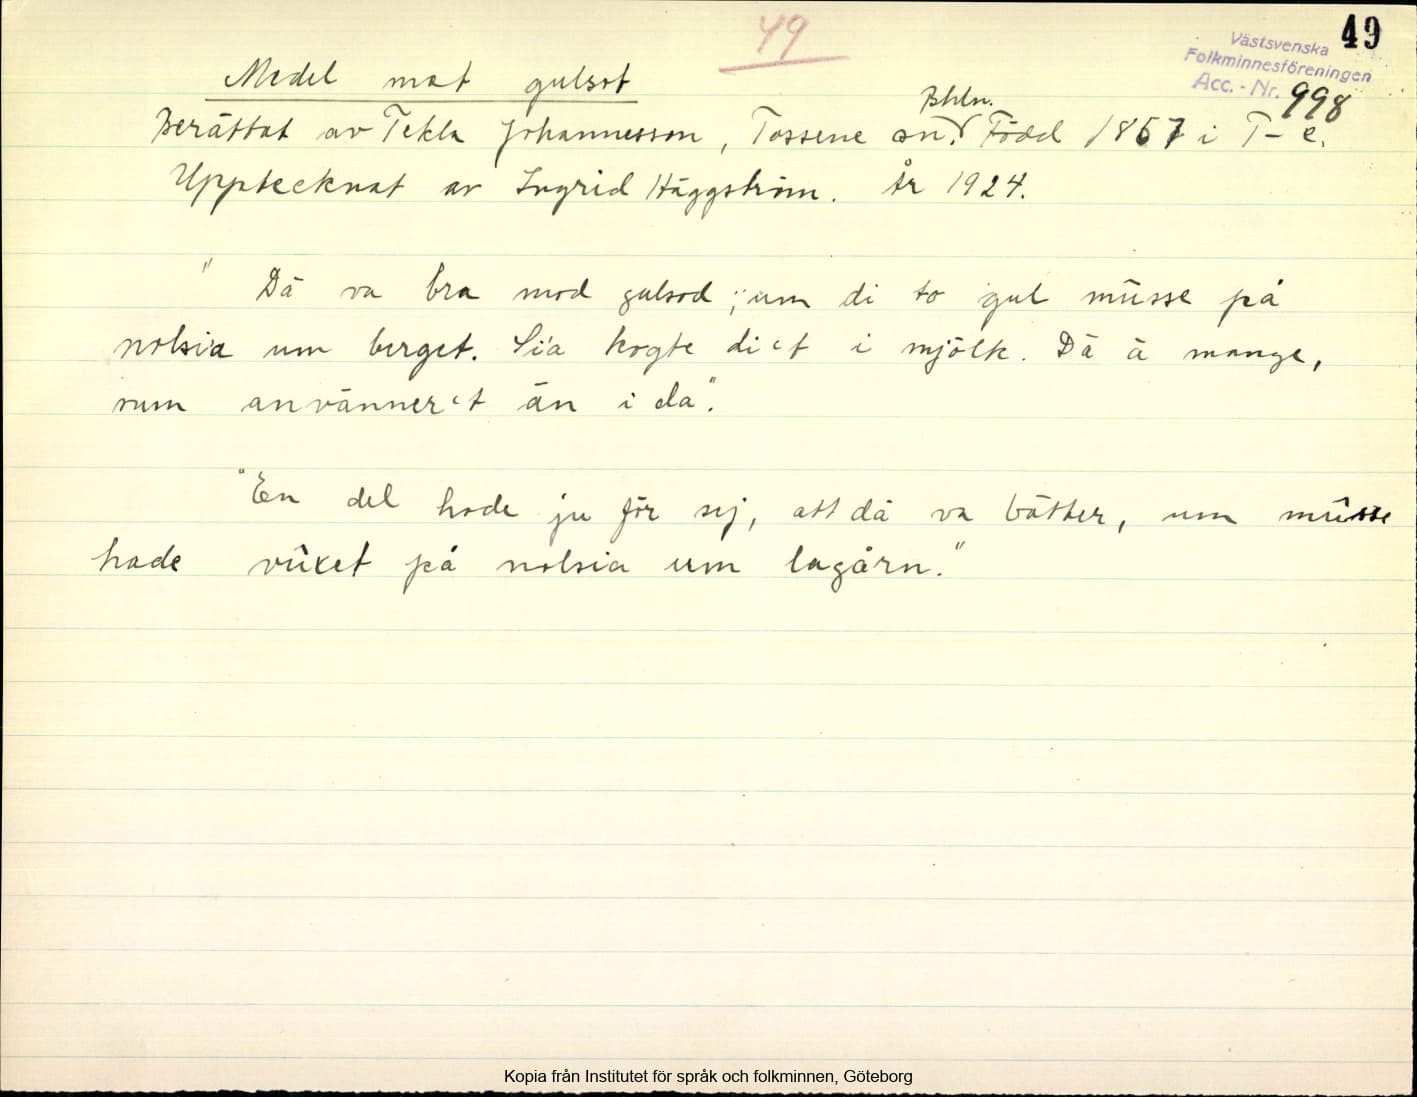 49
49
Västsvenska
Folkminnesföreningen
Acc.-Nr. 998
Medel mot gulsot
Bhln.
Berättat av Tekla Johannesson, Tossene sn. Född 1867 i T-e.
Upptecknat av Ingrid Häggström. År 1924.
" Dä va bra mod gulsod, um di to gul mûsse på
nolsia um berget. Sia kogte di't i mjölk. Dä ä mange,
sum använner't än i da".
"En del hode ju för sej, att dä va bätter, um mûsse
hade vûxet på nolsia um lagårn."
Kopia från Institutet för språk och folkminnen, Göteborg